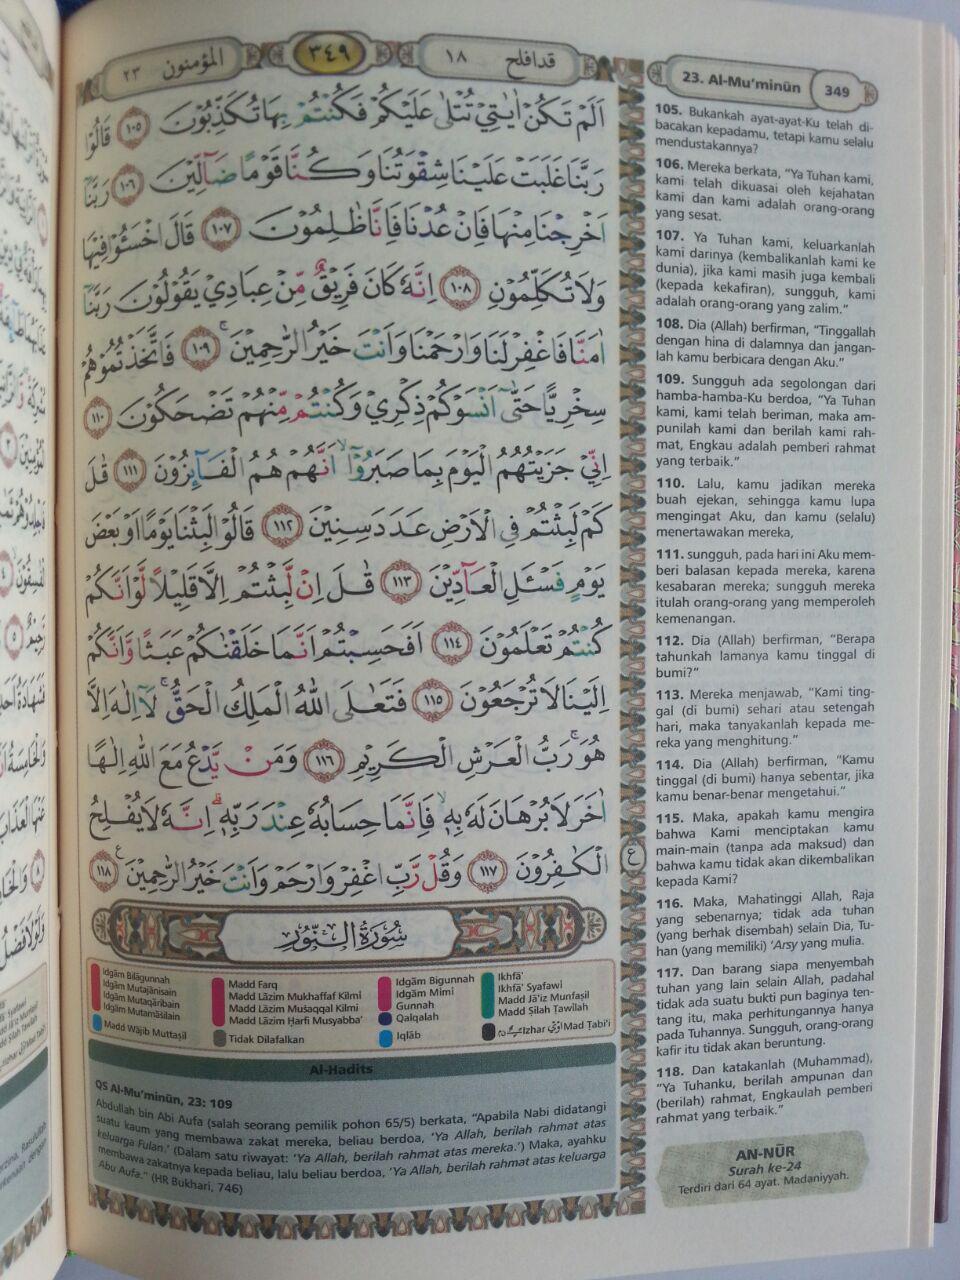 المؤمنون ٢٣
٣٤٩
قدافلح ١٨
اَلَمْ تَكُنْ اٰيٰتِيْ تُتْلٰى عَلَيْكُمْ فَكُنْتُمْ بِهَا تُكَذِّبُوْنَ ١٠٥ قَالُوْا
رَبَّنَا غَلَبَتْ عَلَيْنَا شِقْوَتُنَا وَكُنَّا قَوْمًا ضَاۤلِّيْنَ ١٠٦ رَبَّنَآ
اَخْرِجْنَا مِنْهَا فَاِنْ عُدْنَا فَاِنَّا ظٰلِمُوْنَ ١٠٧ قَالَ اخْسَـُٔوْا فِيْهَا
وَلَا تُكَلِّمُوْنِ ١٠٨ اِنَّهٗ كَانَ فَرِيْقٌ مِّنْ عِبَادِيْ يَقُوْلُوْنَ رَبَّنَآ
اٰمَنَّا فَاغْفِرْ لَنَا وَارْحَمْنَا وَاَنْتَ خَيْرُ الرّٰحِمِيْنَ ۚ ١٠٩ فَاتَّخَذْتُمُوْهُمْ
سِخْرِيًّا حَتّٰٓى اَنْسَوْكُمْ ذِكْرِيْ وَكُنْتُمْ مِّنْهُمْ تَضْحَكُوْنَ ١١٠
اِنِّيْ جَزَيْتُهُمُ الْيَوْمَ بِمَا صَبَرُوْٓاۙ اَنَّهُمْ هُمُ الْفَاۤىِٕزُوْنَ ١١١ قٰلَ
كَمْ لَبِثْتُمْ فِى الْاَرْضِ عَدَدَ سِنِيْنَ ١١٢ قَالُوْا لَبِثْنَا يَوْمًا اَوْ بَعْضَ
يَوْمٍ فَسْـَٔلِ الْعَاۤدِّيْنَ ١١٣ قٰلَ اِنْ لَّبِثْتُمْ اِلَّا قَلِيْلًا لَّوْ اَنَّكُمْ
كُنْتُمْ تَعْلَمُوْنَ ١١٤ اَفَحَسِبْتُمْ اَنَّمَا خَلَقْنٰكُمْ عَبَثًا وَّاَنَّكُمْ
اِلَيْنَا لَا تُرْجَعُوْنَ ١١٥ فَتَعٰلَى اللّٰهُ الْمَلِكُ الْحَقُّۚ لَآ اِلٰهَ اِلَّا
هُوَۚ رَبُّ الْعَرْشِ الْكَرِيْمِ ١١٦ وَمَنْ يَّدْعُ مَعَ اللّٰهِ اِلٰهًا
اٰخَرَ لَا بُرْهَانَ لَهٗ بِهٖۙ فَاِنَّمَا حِسَابُهٗ عِنْدَ رَبِّهٖۗ اِنَّهٗ لَا يُفْلِحُ
الْكٰفِرُوْنَ ١١٧ وَقُلْ رَّبِّ اغْفِرْ وَارْحَمْ وَاَنْتَ خَيْرُ الرّٰحِمِيْنَ ࣖ ١١٨
ع
سُوْرَةُ النُّوْرِ
Idgām Bilāgunnah
Idgām Mutajānisain
Idgām Mutaqāribain
Idgām Mutamāṡilain
Madd Wājib Muttaṣil
Madd Farq
Madd Lāzim Mukhaffaf Kilmi
Madd Lāzim Muṡaqqal Kilmi
Madd Lāzim Ḥarfi Musyabba'
Tidak Dilafalkan
Idgām Bigunnah
Idgām Mimi
Gunnah
Qalqalah
Iqlāb
Ikhfā'
Ikhfā' Syafawi
Madd Jā'iz Munfaṣil
Madd Ṣilah Ṭawīlah
Izhar Mad Ṭabi'i
Al-Hadits
QS Al-Mu'minūn, 23: 109
Abdullah bin Abi Aufa (salah seorang pemilik pohon 65/5) berkata, "Apabila Nabi didatangi
suatu kaum yang membawa zakat mereka, beliau berdoa, 'Ya Allah, berilah rahmat atas
keluarga Fulan.' (Dalam satu riwayat: 'Ya Allah, berilah rahmat atas mereka.') Maka, ayahku
membawa zakatnya kepada beliau, lalu beliau berdoa, 'Ya Allah, berilah rahmat atas keluarga
Abu Aufa." (HR Bukhari, 746)
23. Al-Mu'minūn 349
105. Bukankah ayat-ayat-Ku telah di-
bacakan kepadamu, tetapi kamu selalu
mendustakannya?
106. Mereka berkata, "Ya Tuhan kami,
kami telah dikuasai oleh kejahatan
kami dan kami adalah orang-orang
yang sesat.
107. Ya Tuhan kami, keluarkanlah
kami darinya (kembalikanlah kami ke
dunia), jika kami masih juga kembali
(kepada kekafiran), sungguh, kami
adalah orang-orang yang zalim."
108. Dia (Allah) berfirman, "Tinggallah
dengan hina di dalamnya dan jangan-
lah kamu berbicara dengan Aku."
109. Sungguh ada segolongan dari
hamba-hamba-Ku berdoa, "Ya Tuhan
kami, kami telah beriman, maka am-
punilah kami dan berilah kami rah-
mat, Engkau adalah pemberi rahmat
yang terbaik."
110. Lalu, kamu jadikan mereka
buah ejekan, sehingga kamu lupa
mengingat Aku, dan kamu (selalu)
menertawakan mereka,
111. sungguh, pada hari ini Aku mem-
beri balasan kepada mereka, karena
kesabaran mereka; sungguh mereka
itulah orang-orang yang memperoleh
kemenangan.
112. Dia (Allah) berfirman, "Berapa
tahunkah lamanya kamu tinggal di
bumi?"
113. Mereka menjawab, "Kami ting-
gal (di bumi) sehari atau setengah
hari, maka tanyakanlah kepada me-
reka yang menghitung."
114. Dia (Allah) berfirman, "Kamu
tinggal (di bumi) hanya sebentar, jika
kamu benar-benar mengetahui."
115. Maka, apakah kamu mengira
bahwa Kami menciptakan kamu
main-main (tanpa ada maksud) dan
bahwa kamu tidak akan dikembalikan
kepada Kami?
116. Maka, Mahatinggi Allah, Raja
yang sebenarnya; tidak ada tuhan
(yang berhak disembah) selain Dia, Tu-
han (yang memiliki) 'Arsy yang mulia.
117. Dan barang siapa menyembah
tuhan yang lain selain Allah, padahal
tidak ada suatu bukti pun baginya ten-
tang itu, maka perhitungannya hanya
pada Tuhannya. Sungguh, orang-orang
kafir itu tidak akan beruntung.
118. Dan katakanlah (Muhammad),
"Ya Tuhanku, berilah ampunan dan
(berilah) rahmat, Engkaulah pemberi
rahmat yang terbaik."
AN-NŪR
Surah ke-24
Terdiri dari 64 ayat. Madaniyyah.